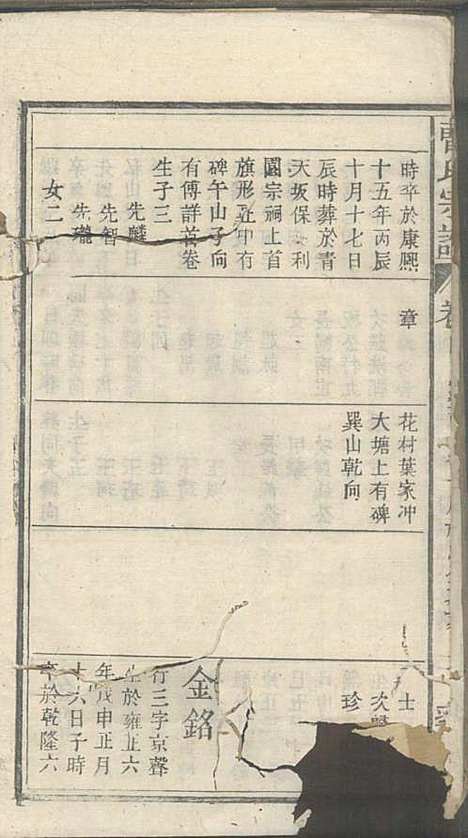 時卒於康熙
十五年丙辰
十月十七日
辰時葬於青
天坂保大利
園宗祠上首
旗形正中有
碑午山子向
有傳詳首卷
生子三
先麟
先智
先瓏
女二
章
花村葉家冲
大塘上有碑
巽山乾向
士
次
珍
金銘
行三字京聲
生於雍正六
年戊申正月
十六日子時
卒於乾隆六
氏宗譜
卷